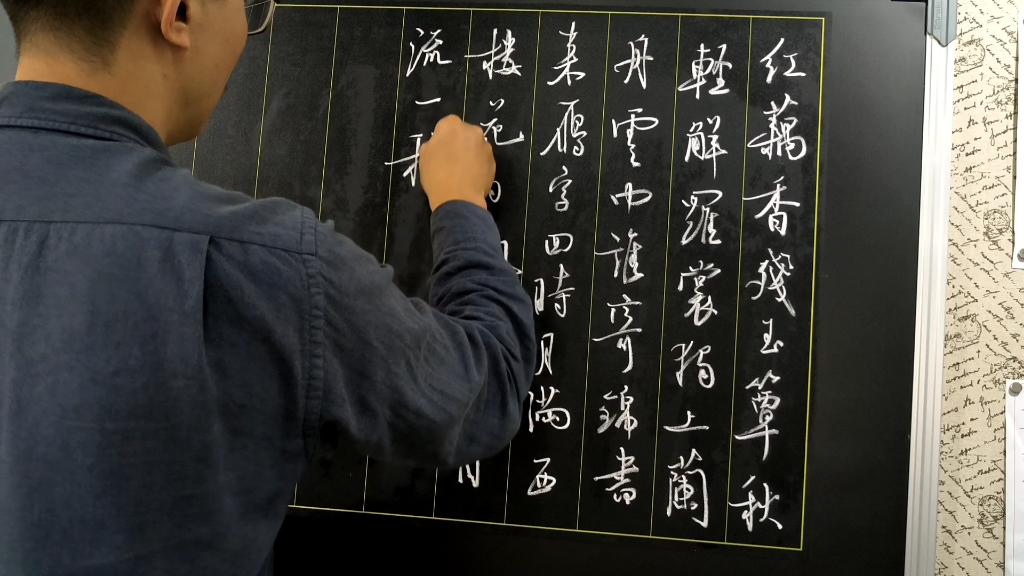 红藕香残玉簟秋
輕解羅裳獨上蘭
舟雲中誰寄錦書
来雁字回時月满西
楼花
流一